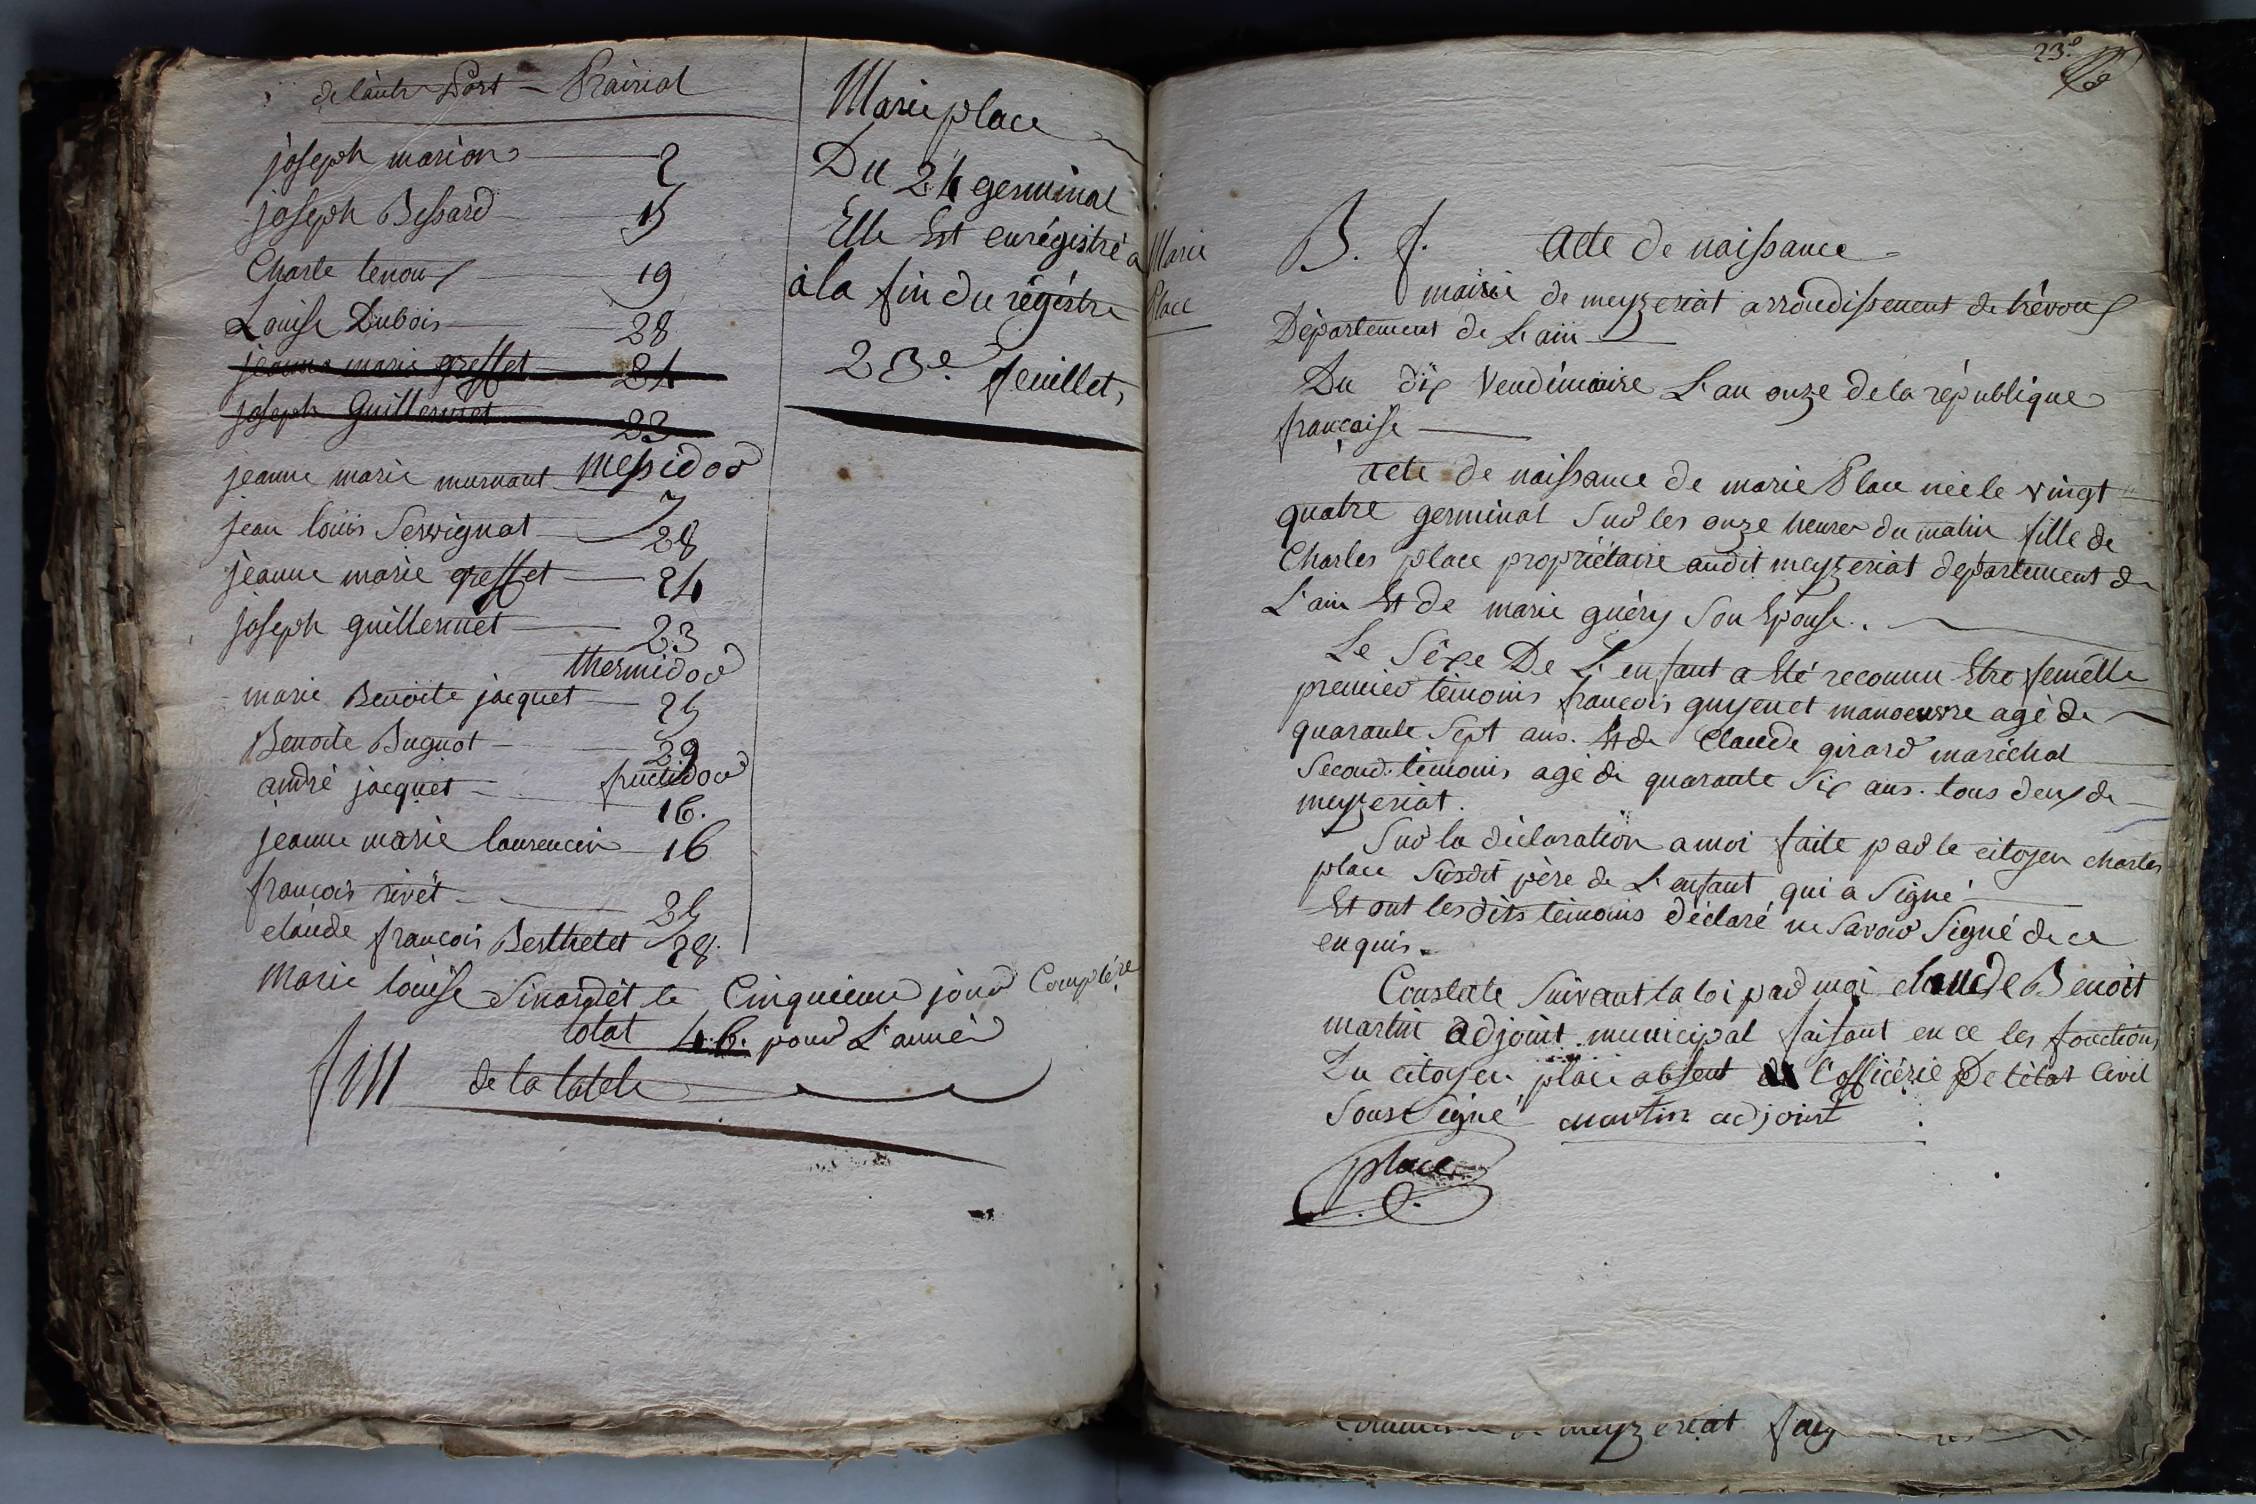 de l'autre Part - Prairial
joseph marion 2
joseph Bessard 15
Charle lenoux 19
Louise Dubois 28
jeanne marie greffet 24
joseph Guillermet 23
messidor
jeanne marie murnant 7
jean louis Servignat 28
jeanne marie greffet 24
joseph guillermet 23
thermidor
marie Benoite jacquet 25
Benoite Bugnot 29
fructidor
andré jacquet 16.
jeanne marie laurencin 16
françois rivet 25
claude françois Berthelet 28.
Marie louise Sinardet le Cinquieme jour Complére
total 46. pour L'année
fin de la table
Marie place
Du 24 germinal
Elle Est enrégistré a
à la fin du régistre
23e. feuillet,
23e
Marie
Place
B. f. acte de naissance
mairie de meyzeriat arrondissement de trévoux
Département de L'ain
Du dix Vendémiaire L'an onze de la république
française
acte de naissance de marie Place née le vingt
quatre germinal Sur les onze heures du matin fille de
Charles place propriétaire audit meyzeriat département de
L'ain Et de marie guéry Son Epouse.
Le Séxe De L'enfant a Eté reconnu Etre femelle
premier témoins françois guyenet manoeuvre agé de
quarante Sept ans. Et de Claude girard maréchal
Second témoins agé de quarante Six ans. tous deux de
meyzeriat.
Sur la déclaration a moi faite par le citoyen charles
place Susdit père de L'enfant qui a Signé
Et ont lesdits témoins déclaré ne Savoir Signé de ce
enquis.
Constaté Suivant la loi par moi claude Benoit
martin adjoint municipal faisant en ce les fonctions
Du citoyen place absent l'officérie De l'état Civil
Sous Signé martin adjoint
place
meyzeriat